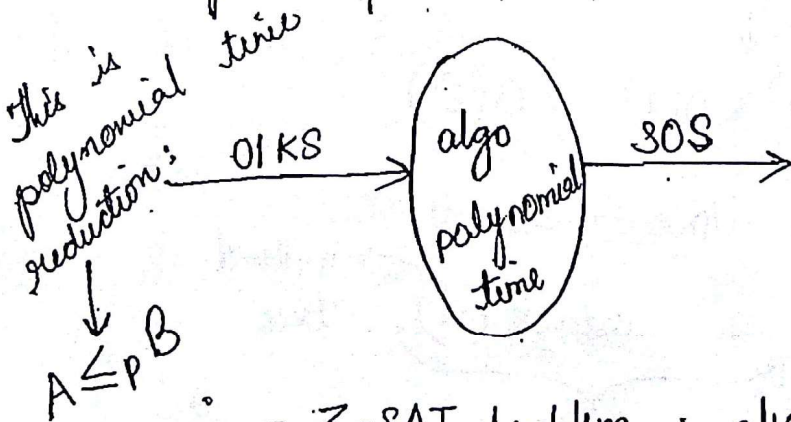 This is
polynomial time
reduction:
01KS
algo
polynomial
time
SOS
A ≤p B
3-SAT problem